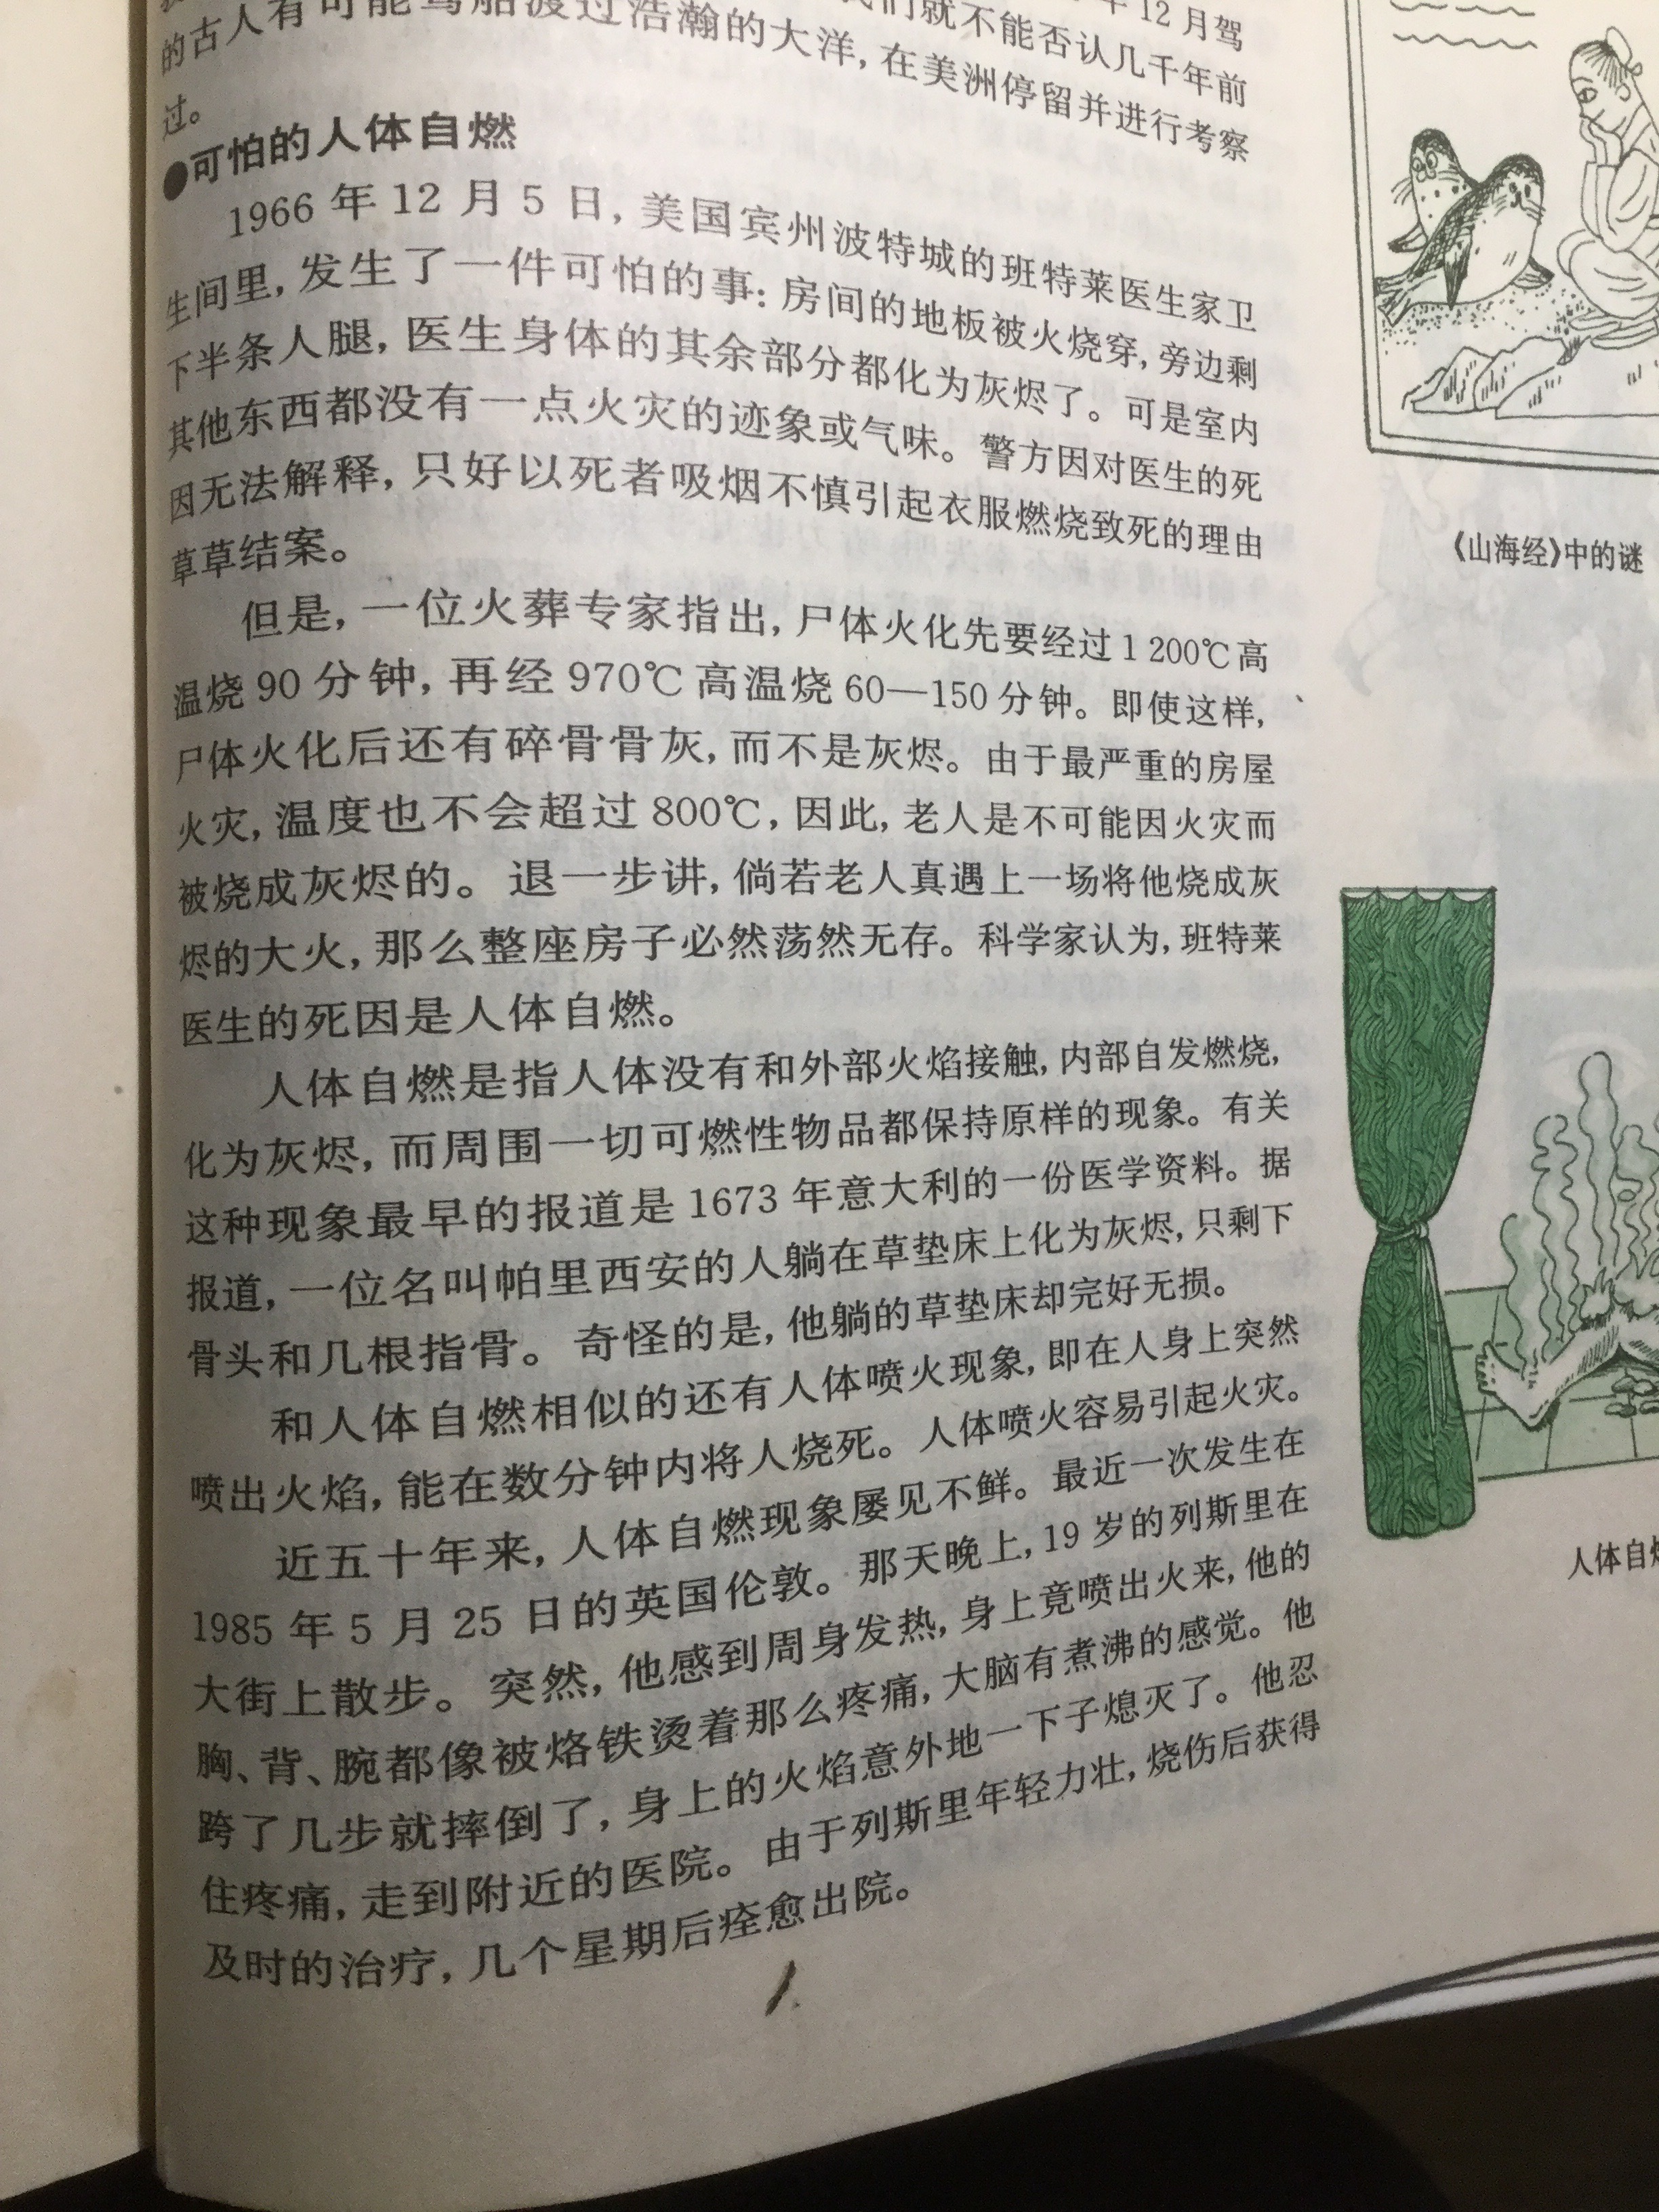 年 12 月驾
们就不能否认几千年前
的古人有可能驾船渡过浩瀚的大洋,在美洲停留并进行考察
过。
●可怕的人体自燃
1966 年 12 月 5 日,美国宾州波特城的班特莱医生家卫
生间里,发生了一件可怕的事:房间的地板被火烧穿,旁边剩
下半条人腿,医生身体的其余部分都化为灰烬了。可是室内
其他东西都没有一点火灾的迹象或气味。警方因对医生的死
因无法解释,只好以死者吸烟不慎引起衣服燃烧致死的理由
草草结案。
但是,一位火葬专家指出,尸体火化先要经过 1 200℃高
温烧 90 分钟,再经 970℃高温烧 60—150 分钟。即使这样,
尸体火化后还有碎骨骨灰,而不是灰烬。由于最严重的房屋
火灾,温度也不会超过 800℃,因此,老人是不可能因火灾而
被烧成灰烬的。退一步讲,倘若老人真遇上一场将他烧成灰
烬的大火,那么整座房子必然荡然无存。科学家认为,班特莱
医生的死因是人体自燃。
人体自燃是指人体没有和外部火焰接触,内部自发燃烧,
化为灰烬,而周围一切可燃性物品都保持原样的现象。有关
这种现象最早的报道是 1673 年意大利的一份医学资料。据
报道,一位名叫帕里西安的人躺在草垫床上化为灰烬,只剩下
骨头和几根指骨。奇怪的是,他躺的草垫床却完好无损。
和人体自燃相似的还有人体喷火现象,即在人身上突然
喷出火焰,能在数分钟内将人烧死。人体喷火容易引起火灾。
近五十年来,人体自燃现象屡见不鲜。最近一次发生在
1985 年 5 月 25 日的英国伦敦。那天晚上,19 岁的列斯里在
大街上散步。突然,他感到周身发热,身上竟喷出火来,他的
胸、背、腕都像被烙铁烫着那么疼痛,大脑有煮沸的感觉。他
跨了几步就摔倒了,身上的火焰意外地一下子熄灭了。他忍
住疼痛,走到附近的医院。由于列斯里年轻力壮,烧伤后获得
及时的治疗,几个星期后痊愈出院。
《山海经》中的谜
人体自燃